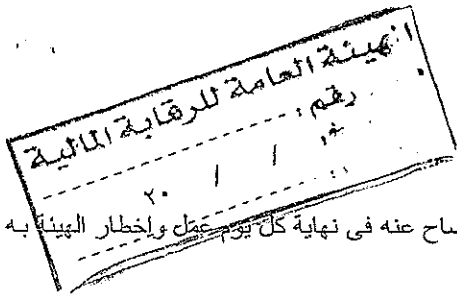 الهيئة العامة للرقابة المالية
رقم :
/ / ٢٠
ساح عنه فى نهاية كل يوم عمل وإخطار الهيئة به